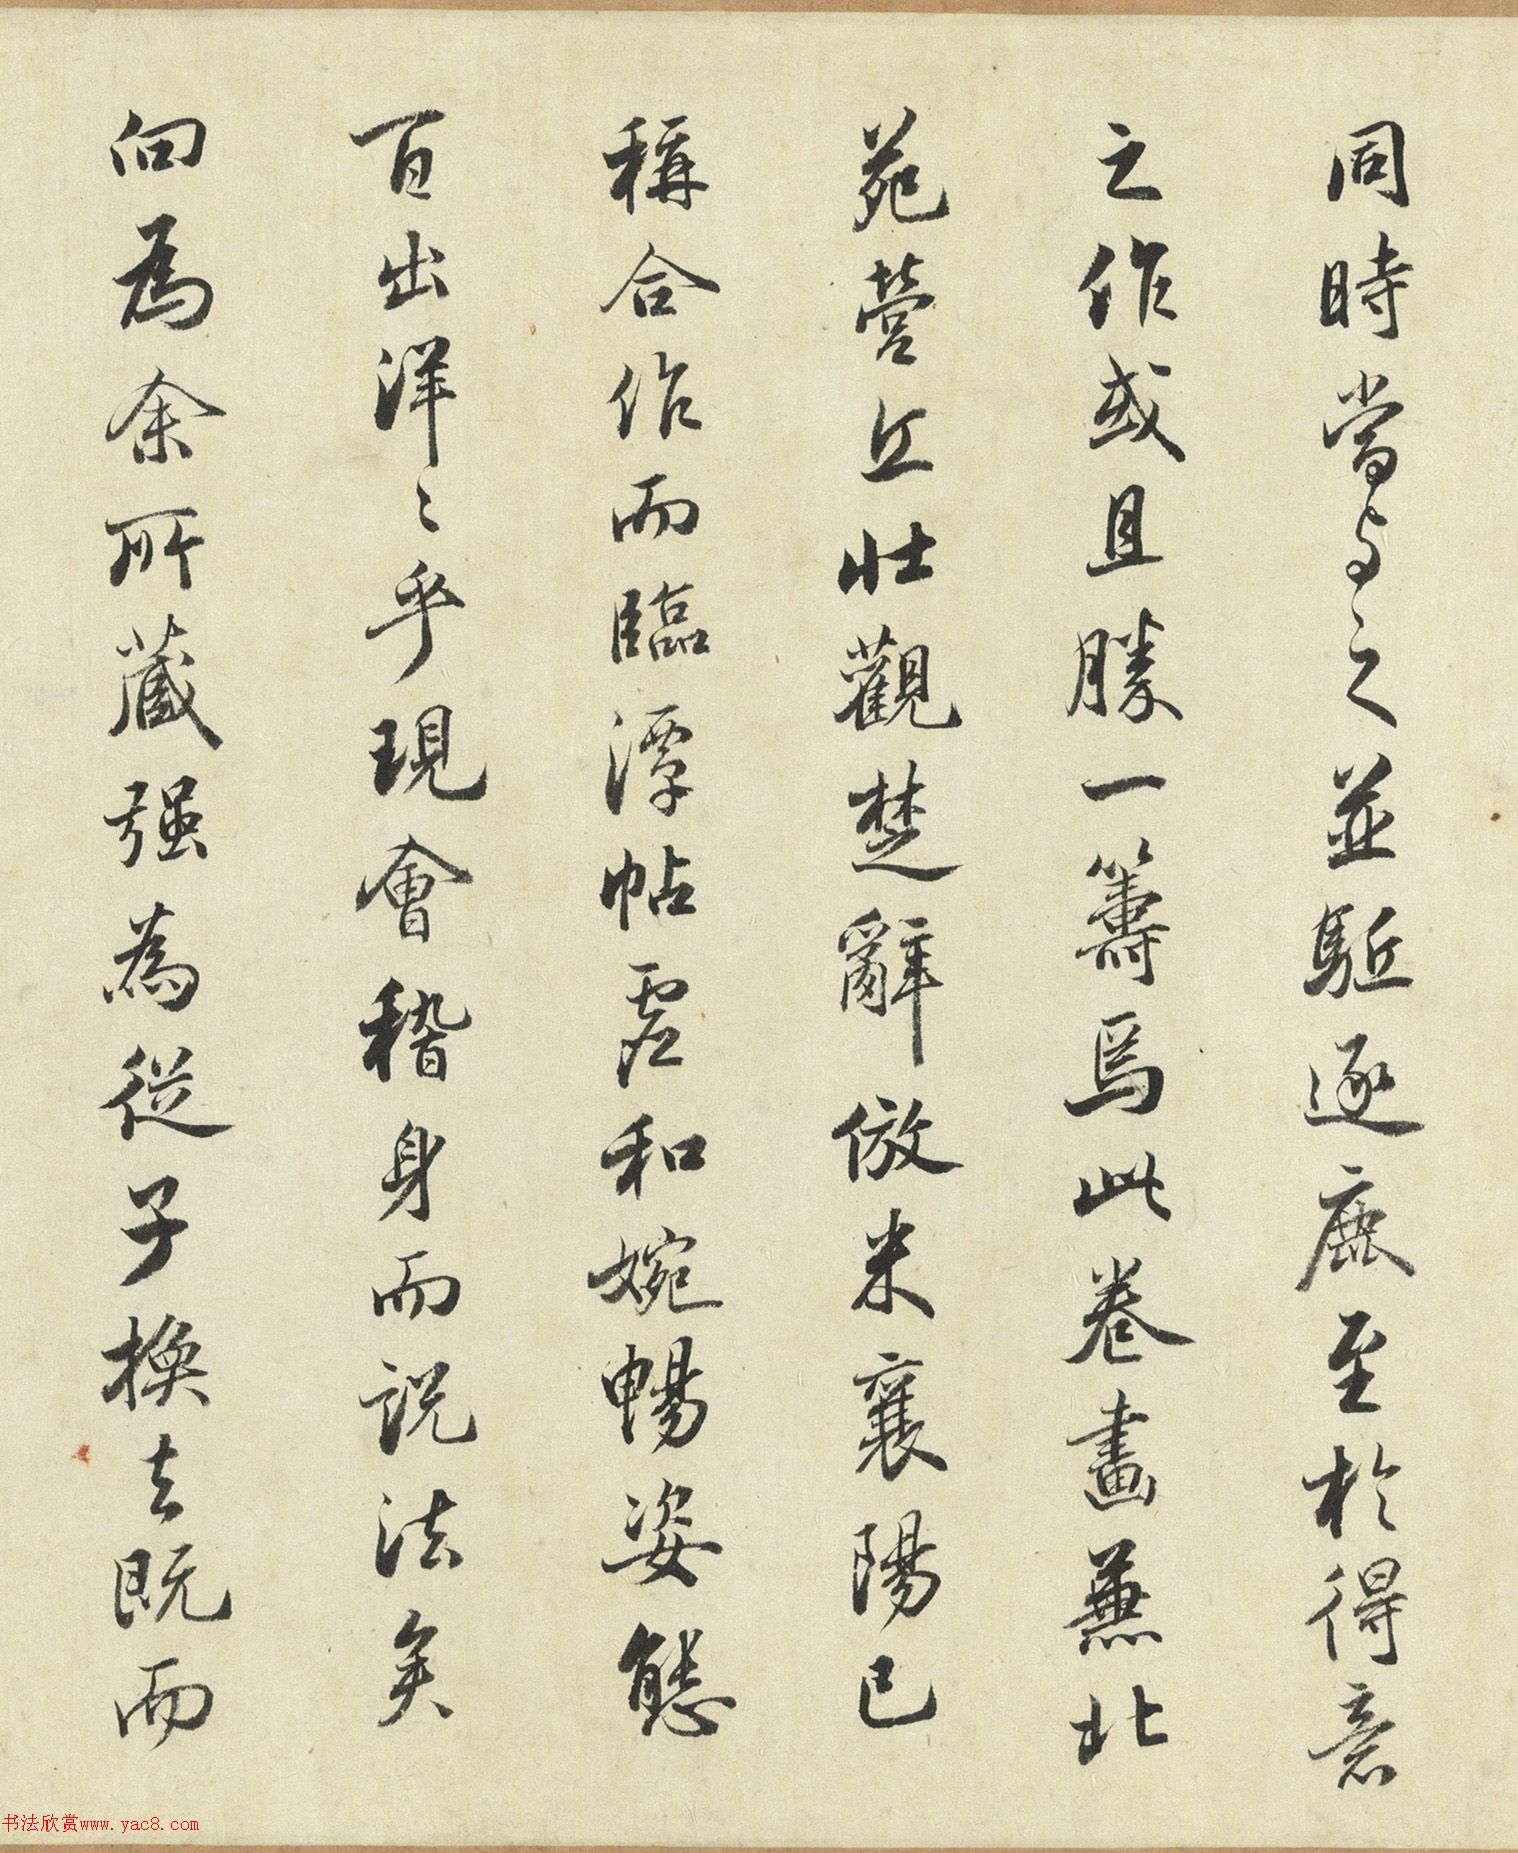 同時當與之並駈逐鹿至於得意
之作或且勝一籌焉此卷畫兼北
苑營丘壯觀楚辭倣米襄陽已
稱合作而臨潭帖虛和婉暢姿態
百出洋〻乎現會稽身而説法矣
向為余所藏强為從子換去既而
书法欣赏www.yac8.com